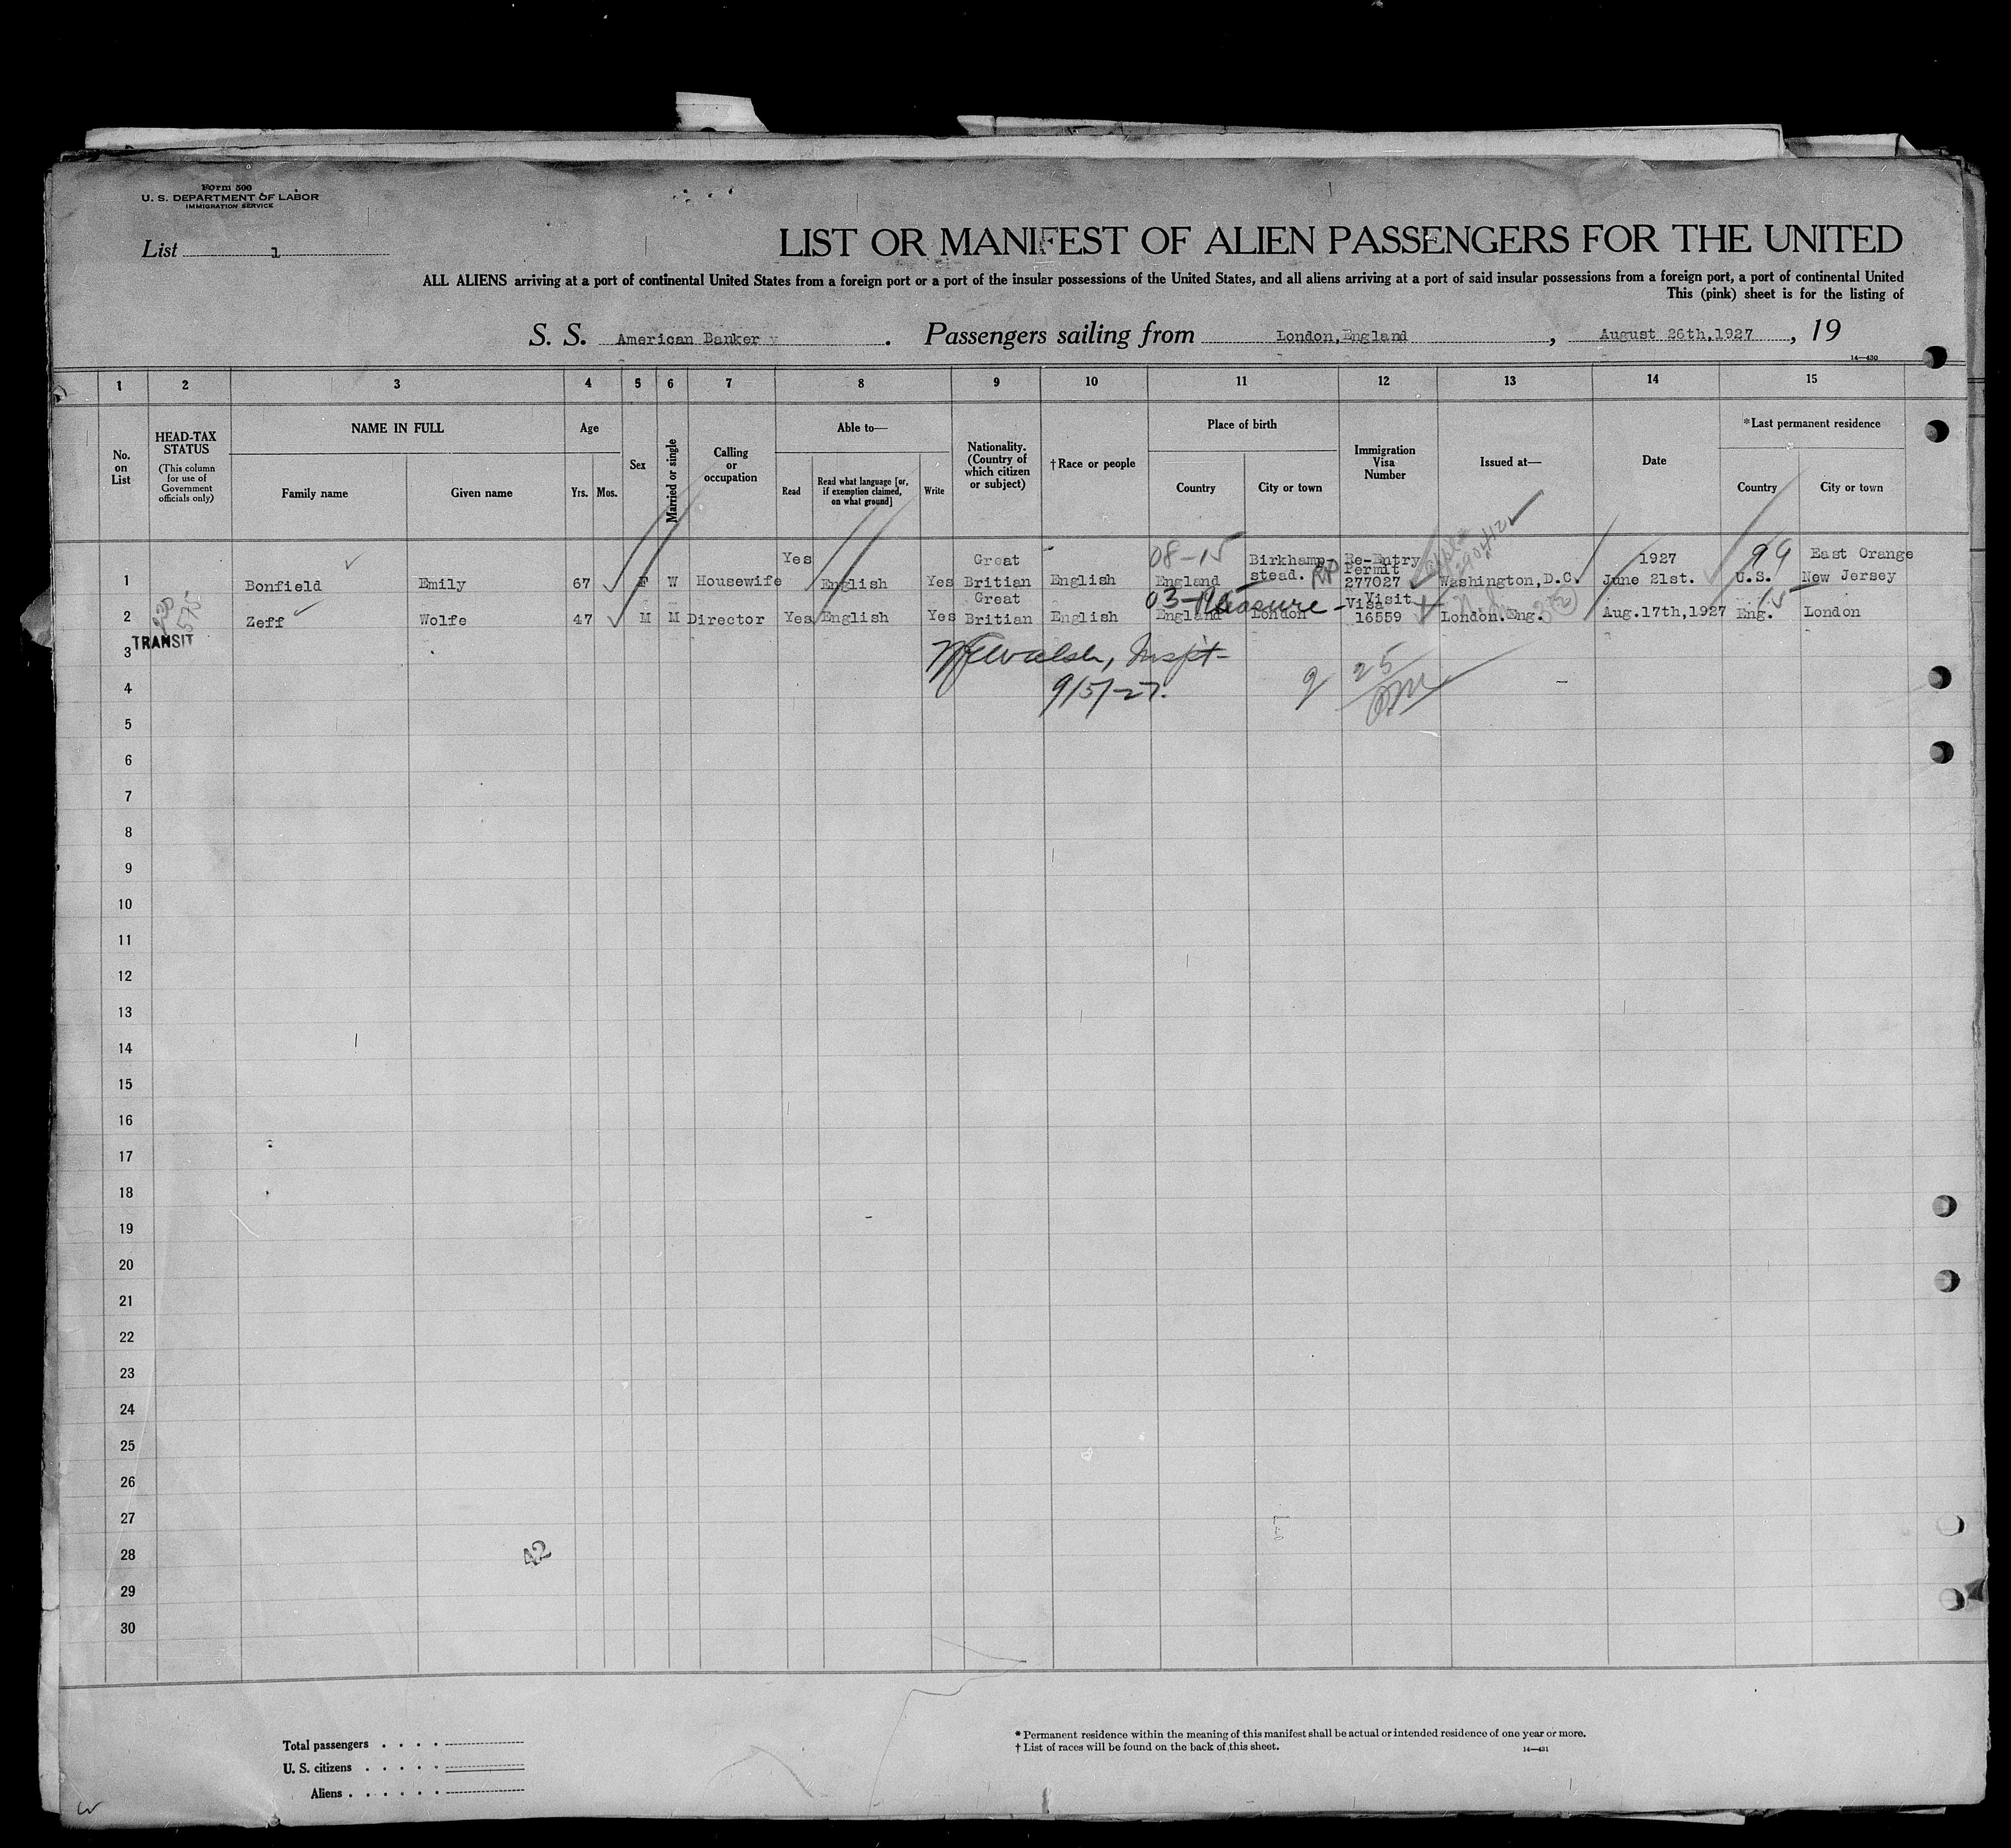 Form 500
U. S. DEPARTMENT OF LABOR
IMMIGRATION SERVICE
List 1
LIST OR MANIFEST OF ALIEN PASSENGERS FOR THE UNITED
ALL ALIENS arriving at a port of continental United States from a foreign port or a port of the insular possessions of the United States, and all aliens arriving at a port of said insular possessions from a foreign port, a port of continental United
This (pink) sheet is for the listing of
S. S. American Banker . Passengers sailing from London,England , August 26th,1927 , 19
14—430
1 2 3 4 5 6 7 8 9 10 11 12 13 14 15
No. on List
HEAD-TAX STATUS
(This column for use of Government officials only)
NAME IN FULL
Family name Given name
Age
Yrs. Mos.
Sex
Married or single
Calling or occupation
Able to—
Read
Read what language [or, if exemption claimed, on what ground]
Write
Nationality. (Country of which citizen or subject)
†Race or people
Place of birth
Country City or town
Immigration Visa Number
Issued at—
Date
*Last permanent residence
Country City or town
1 Bonfield Emily 67 F W Housewife Yes English Yes Great Britian English England Birkhampstead. Re-Entry Permit 277027 Washington,D.C. 1927 June 21st. U.S. East Orange New Jersey
08-15
99
2 Zeff Wolfe 47 M M Director Yes English Yes Great Britian English England London Visit Visa 16559 London.Eng. Aug.17th,1927 Eng. London
Pleasure
TRANSIT
3
Walsh, Inspt-
4
9/5/-27.
25
5
6
7
8
9
10
11
12
13
14
15
16
17
18
19
20
21
22
23
24
25
26
27
28
42
29
30
Total passengers . . . .
U. S. citizens . . . . .
Aliens . . . . . .
* Permanent residence within the meaning of this manifest shall be actual or intended residence of one year or more.
† List of races will be found on the back of this sheet.
14—431